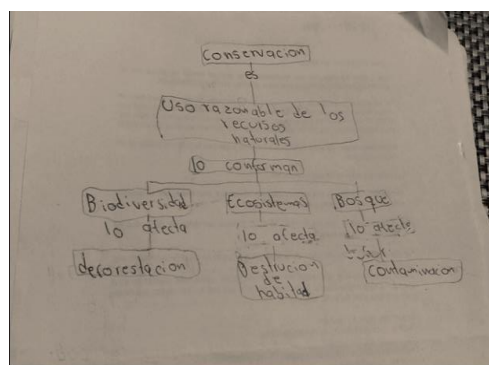 conservacion
es
Uso razonable de los
recursos
naturales
lo conforman
Biodiversidad
lo afecta
deforestacion
Ecosistemas
lo afecta
Destrucion
de
habitad
Bosque
lo afecta
contaminacion